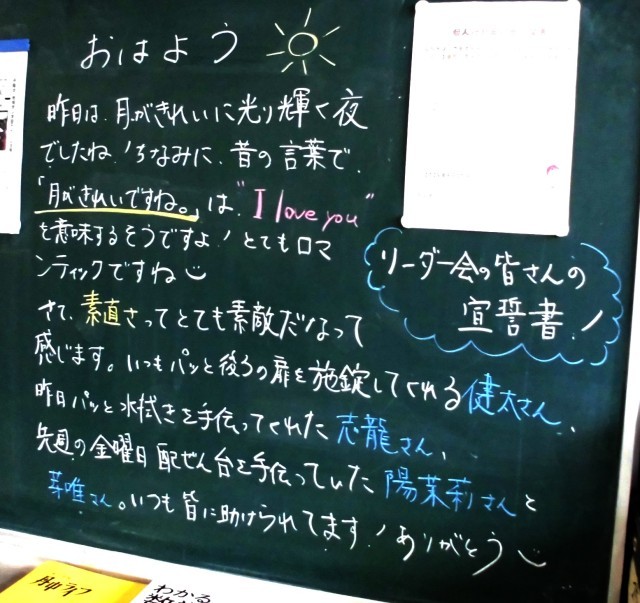 おはよう
昨日は、月がきれいに光り輝く夜
でしたね!ちなみに、昔の言葉で、
「月がきれいですね。」は、"I love you"
を意味するそうですよ!とてもロマ
ンティックですね
さて、素直さってとても素敵だなって
感じます。いつもパッと後ろの扉を施錠してくれる健太さん、
昨日パッと水拭きを手伝ってくれた志龍さん、
先週の金曜日配ぜん台を手伝っていた陽茉莉さんと
芽唯さん。いつも皆に助けられてます!ありがとう
リーダー会の皆さんの
宣誓書!
わかる